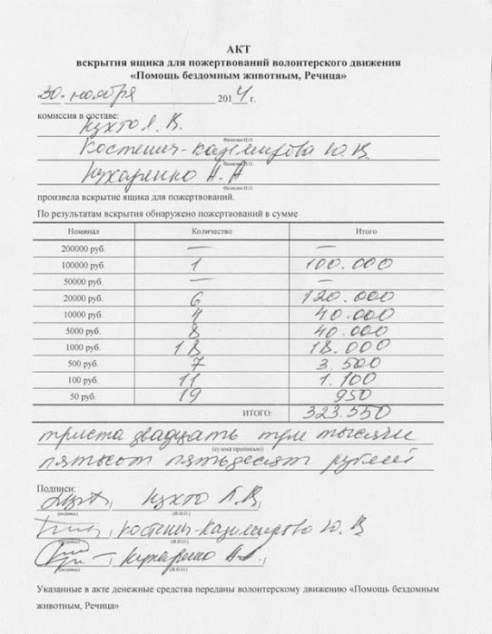 АКТ
вскрытия ящика для пожертвований волонтерского движения
«Помощь бездомным животным, Речица»
30. ноября 2014 г.
комиссия в составе:
Кухто Л. В.
Фамилия И.О.
Костенич-Казимирова Ю. В.
Фамилия И.О.
Кухаренко А. А
Фамилия И.О.
произвела вскрытие ящика для пожертвований.
По результатам вскрытия обнаружено пожертвований в сумме
Номинал Количество Итого
200000 руб. — —
100000 руб. 1 100.000
50000 руб. — —
20000 руб. 6 120.000
10000 руб. 4 40.000
5000 руб. 8 40.000
1000 руб. 18 18.000
500 руб. 7 3.500
100 руб. 11 1.100
50 руб. 19 950
ИТОГО: 323.550
триста двадцать три тысячи
(сумма прописью)
пятьсот пятьдесят рублей
Подписи:
Кухто Л. В,
(подпись) (Ф.И.О.)
Костенич-Казимирова Ю. В
(подпись) (Ф.И.О.)
Кухаренко А.А.,
(подпись) (Ф.И.О.)
Указанные в акте денежные средства переданы волонтерскому движению «Помощь бездомным
животным, Речица»